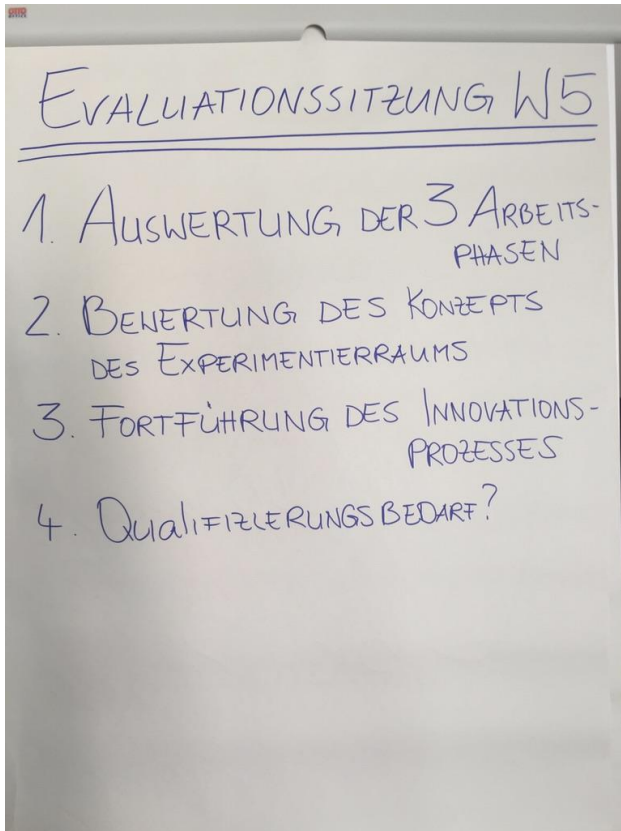 EVALUATIONSSITZUNG W5
1. AUSWERTUNG DER 3 ARBEITS-
PHASEN
2. BEWERTUNG DES KONZEPTS
DES EXPERIMENTIERRAUMS
3. FORTFÜHRUNG DES INNOVATIONS-
PROZESSES
4. QUALIFIZIERUNGSBEDARF?